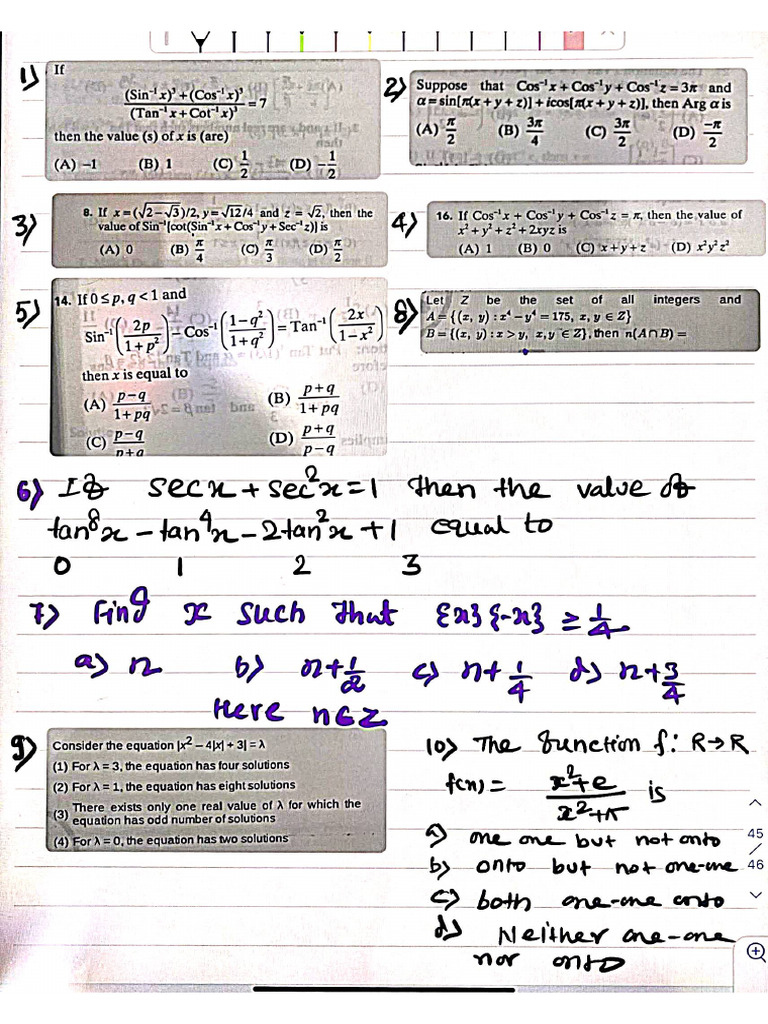 1) If
(Sin⁻¹x)³ + (Cos⁻¹x)³ / (Tan⁻¹x + Cot⁻¹x)³ = 7
then the value (s) of x is (are)
(A) −1 (B) 1 (C) 1/2 (D) −1/2
2) Suppose that Cos⁻¹x + Cos⁻¹y + Cos⁻¹z = 3π and
α = sin[π(x + y + z)] + icos[π(x + y + z)], then Arg α is
(A) π/2 (B) 3π/4 (C) 3π/2 (D) −π/2
3) 8. If x = (√2−√3)/2, y = √12/4 and z = √2, then the
value of Sin⁻¹[cot(Sin⁻¹x + Cos⁻¹y + Sec⁻¹z)] is
(A) 0 (B) π/4 (C) π/3 (D) π/2
4) 16. If Cos⁻¹x + Cos⁻¹y + Cos⁻¹z = π, then the value of
x² + y² + z² + 2xyz is
(A) 1 (B) 0 (C) x + y + z (D) x²y²z²
5) 14. If 0 ≤ p, q < 1 and
Sin⁻¹(2p/1+p²) − Cos⁻¹(1−q²/1+q²) = Tan⁻¹(2x/1−x²)
then x is equal to
(A) p−q/1+pq (B) p+q/1+pq
(C) p−q/p+q (D) p+q/p−q
8) Let Z be the set of all integers and
A = {(x, y) : x⁴ − y⁴ = 175, x, y ∈ Z}
B = {(x, y) : x > y, x, y ∈ Z}, then n(A∩B) =
6) If secx + sec²x = 1 then the value of
tan⁸x − tan⁴x − 2tan²x + 1 equal to
0 1 2 3
7) Find x such that {x}{-x} ≥ 1/4
a) n b) n+1/2 c) n+1/4 d) n+3/4
Here n∈Z
9) Consider the equation |x² − 4|x| + 3| = λ
(1) For λ = 3, the equation has four solutions
(2) For λ = 1, the equation has eight solutions
(3) There exists only one real value of λ for which the
equation has odd number of solutions
(4) For λ = 0, the equation has two solutions
10) The function f: R→R
f(x) = x²+e/x²+π is
a) one one but not onto
b) onto but not one-one
c) both one-one onto
d) Neither one-one
nor onto
45
/
46